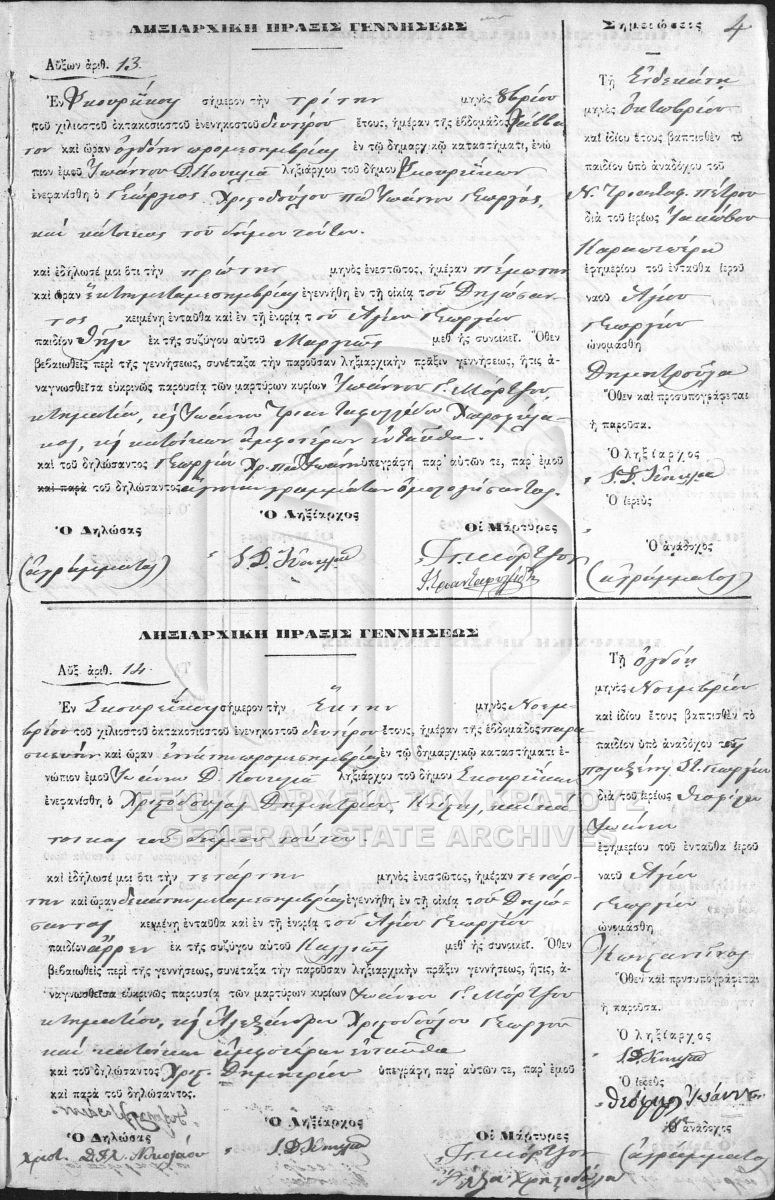 4
ΛΗΞΙΑΡΧΙΚΗ ΠΡΑΞΙΣ ΓΕΝΝΗΣΕΩΣ
Αὔξων ἀριθ. 13.
Ἐν Σκουρίκου σήμερον τὴν τρίτην μηνὸς 8βρίου
τοῦ χιλιοστοῦ ὀκτακοσιοστοῦ ἐνενηκοστοῦ δευτέρου ἔτους, ἡμέραν τῆς ἑβδομάδος Σάββα
τον καὶ ὥραν ὀγδόην προμεσημβρίας ἐν τῷ δημαρχικῷ καταστήματι, ἐνώ
πιον ἐμοῦ Ἰωάννου Δ. Κουτιλᾶ ληξιάρχου τοῦ δήμου Σκουρίκων
ἐνεφανίσθη ὁ Γεώργιος Χριστοδούλου Παπᾶ Ἰωάννου Γεωργὸς,
καὶ κάτοικος τοῦ δήμου τούτου.
καὶ ἐδήλωσέ μοι ὅτι τὴν πρώτην μηνὸς ἐνεστῶτος, ἡμέραν πέμπτην
καὶ ὥραν ἕκτην μεταμεσημβρίας ἐγεννήθη ἐν τῇ οἰκίᾳ τοῦ Δηλώσαν
τος κειμένῃ ἐνταῦθα καὶ ἐν τῇ ἐνορίᾳ τοῦ Ἁγίου Γεωργίου
παιδίον θῆλυ ἐκ τῆς συζύγου αὐτοῦ Μαργιῶς μεθ' ἧς συνοικεῖ. Ὅθεν
βεβαιωθεὶς περὶ τῆς γεννήσεως, συνέταξα τὴν παροῦσαν ληξιαρχικὴν πρᾶξιν γεννήσεως, ἥτις ἀ-
ναγνωσθεῖσα εὐκρινῶς παρουσίᾳ τῶν μαρτύρων κυρίων Ἰωάννου Γ. Μόρτζου
κτηματίου, κ Ἰωάννου Τριανταφυλλίδου Χωροφύλα
κος, κ κατοίκων ἀμφοτέρων ἐνταῦθα.
καὶ τοῦ δηλώσαντος Γεωργίου Χρ. Παπᾶ Ἰωάννου ὑπεγράφη παρ' αὐτῶν τε, παρ' ἐμοῦ
καὶ παρὰ τοῦ δηλώσαντος ἀγνοίαν γραμμάτων ὁμολογήσαντος.
Ὁ Δηλώσας
Ὁ Ληξίαρχος
Οἱ Μάρτυρες
(ἀγράμματος)
Ι. Δ. Κουτιλᾶς
Γ. Μόρτζος
Ι. Τριανταφυλλίδης
Σημειώσεις
Τῇ Ἑνδεκάτῃ
μηνὸς Ὀκτωβρίου
καὶ ἰδίου ἔτους βαπτισθὲν τὸ
παιδίον ὑπὸ ἀναδόχου
Ν. Τριανταφ. Πέτρου
διὰ τοῦ ἱερέως Ἰακώβου
ἐφημερίου τοῦ ἐνταῦθα ἱεροῦ
ναοῦ Ἁγίου
Γεωργίου
ὠνομάσθη
Δημητροῦλα
Ὅθεν καὶ προσυπογράφεται
ἡ παροῦσα.
Ὁ ληξίαρχος
Ι. Δ. Κουτιλᾶς
Ὁ ἱερεὺς
Ὁ ἀνάδοχος
(ἀγράμματος)
ΛΗΞΙΑΡΧΙΚΗ ΠΡΑΞΙΣ ΓΕΝΝΗΣΕΩΣ
Αὔξ ἀριθ. 14.
Ἐν Σκουρίκου σήμερον τὴν Ἕκτην μηνὸς Νοεμ-
βρίου τοῦ χιλιοστοῦ ὀκτακοσιοστοῦ ἐνενηκοστοῦ δευτέρου ἔτους, ἡμέραν τῆς ἑβδομάδος παρα
σκευὴν καὶ ὥραν ἐνάτην προμεσημβρίας ἐν τῷ δημαρχικῷ καταστήματι ἐ-
νώπιον ἐμοῦ Ἰωάννου Δ. Κουτιλᾶ ληξιάρχου τοῦ δήμου Σκουρίκων
ἐνεφανίσθη ὁ Χριστόδουλος Δημητρίου, Κτίστης, καὶ κά
τοικος τοῦ δήμου τούτου.
καὶ ἐδήλωσέ μοι ὅτι τὴν τετάρτην μηνὸς ἐνεστῶτος, ἡμέραν τετάρ
την καὶ ὥραν δεκάτην μεταμεσημβρίας ἐγεννήθη ἐν τῇ οἰκίᾳ τοῦ Δηλώ-
σαντος κειμένῃ ἐνταῦθα καὶ ἐν τῇ ἐνορίᾳ τοῦ Ἁγίου Γεωργίου
παιδίον ἄρρεν ἐκ τῆς συζύγου αὐτοῦ Καλλιῶς μεθ' ἧς συνοικεῖ. Ὅθεν
βεβαιωθεὶς περὶ τῆς γεννήσεως, συνέταξα τὴν παροῦσαν ληξιαρχικὴν πρᾶξιν γεννήσεως, ἥτις, ἀ-
ναγνωσθεῖσα εὐκρινῶς παρουσίᾳ τῶν μαρτύρων κυρίων Ἰωάννου Γ. Μόρτζου
κτηματίου, κ Ἀλεξάνδρου Χριστοδούλου Γεωργοῦ
καὶ κατοίκων ἀμφοτέρων ἐνταῦθα
καὶ τοῦ δηλώσαντος Χριστ. Δημητρίου ὑπεγράφη παρ' αὐτῶν τε, παρ' ἐμοῦ
καὶ παρὰ τοῦ δηλώσαντος.
Ὁ Δηλώσας
Ὁ Ληξίαρχος
Οἱ Μάρτυρες
Ι. Δ. Κουτιλᾶς
Γ. Μόρτζος
Τῇ ὀγδόῃ
μηνὸς Νοεμβρίου
καὶ ἰδίου ἔτους βαπτισθὲν τὸ
παιδίον ὑπὸ ἀναδόχου τῆς
Πολυξένης Π. Γεωργίου
διὰ τοῦ ἱερέως Θεοφίλου
Ἰωάννου
ἐφημερίου τοῦ ἐνταῦθα ἱεροῦ
ναοῦ Ἁγίου
Γεωργίου
ὠνομάσθη
Κωνσταντῖνος
Ὅθεν καὶ προσυπογράφεται
ἡ παροῦσα.
Ὁ ληξίαρχος
Ι. Δ. Κουτιλᾶς
Ὁ ἱερεὺς
Θεόφιλος Ἰωάννου
Ὁ ἀνάδοχος
(ἀγράμματος)
ΓΕΝΙΚΑ ΑΡΧΕΙΑ ΤΟΥ ΚΡΑΤΟΥΣ
GENERAL STATE ARCHIVES